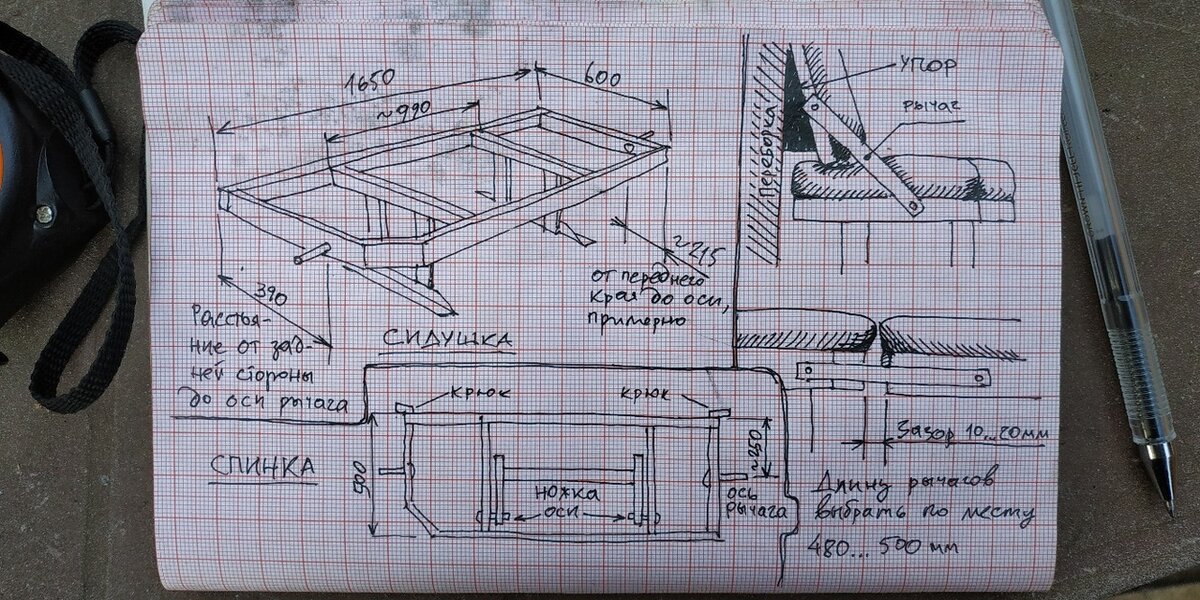 1650
600
~990
390
Расстоя-
ние от зад-
ней стороны
до оси рычага
~215
от переднего
края до оси,
примерно
СИДУШКА
Переборка
УПОР
рычаг
Зазор 10...20мм
Длину рычагов
выбрать по месту
480...500 мм
СПИНКА
крюк
крюк
500
~250
ножка
оси
ось
рычага